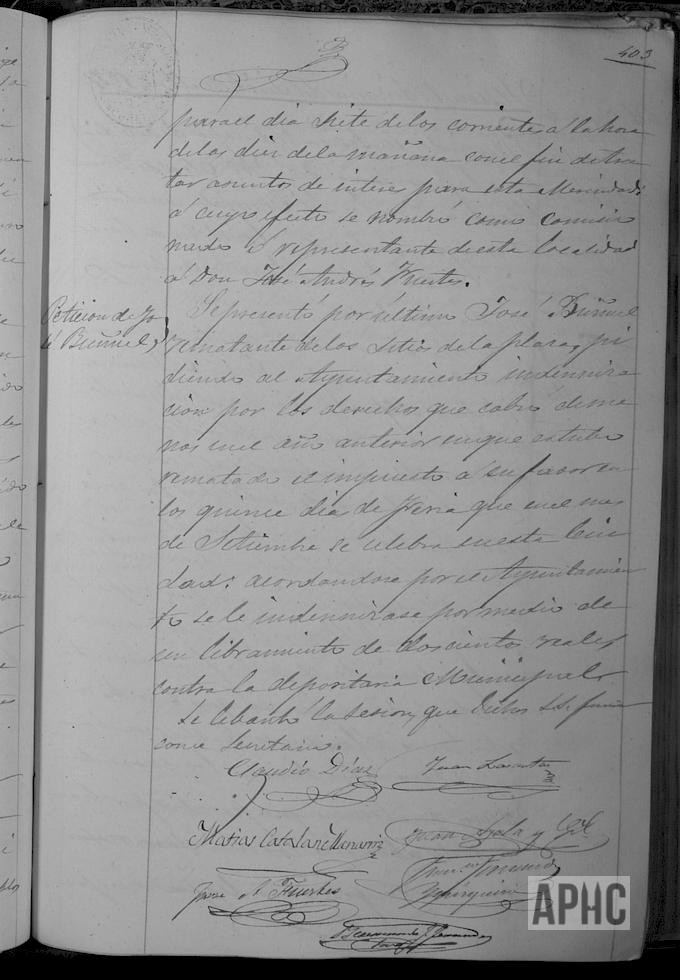 403
para el dia siete de los corrientes á la hora
de las diez de la mañana con el fin de tra-
tar asuntos de interes para esta Merindad:
á cuyo efecto se nombró como comisio
nado ó representante de esta localidad
á Don José Andrés Fuertes.
Peticion de Jo
sé Buñuel
Se presentó por último José Buñuel
rematante de los sitios de la plaza, pi
diendo al Ayuntamiento indemniza
cion por los derechos que cobró de me
nos en el año anterior en que estubo
rematado el impuesto á su favor en
los quince dias de Feria que en el mes
de Setiembre se celebra en esta Ciu
dad: acordandose por el Ayuntamien
to se le indemnizase por medio de
un libramiento de doscientos reales
contra la depositaria Municipal.
Se lebantó la sesion, que dichos SS. firman
con el Secretario.
Claudio Diaz
Juan Lasantas
Matias Catalan
Juan Ayala y Gil
Jose A. Fuertes
APHC